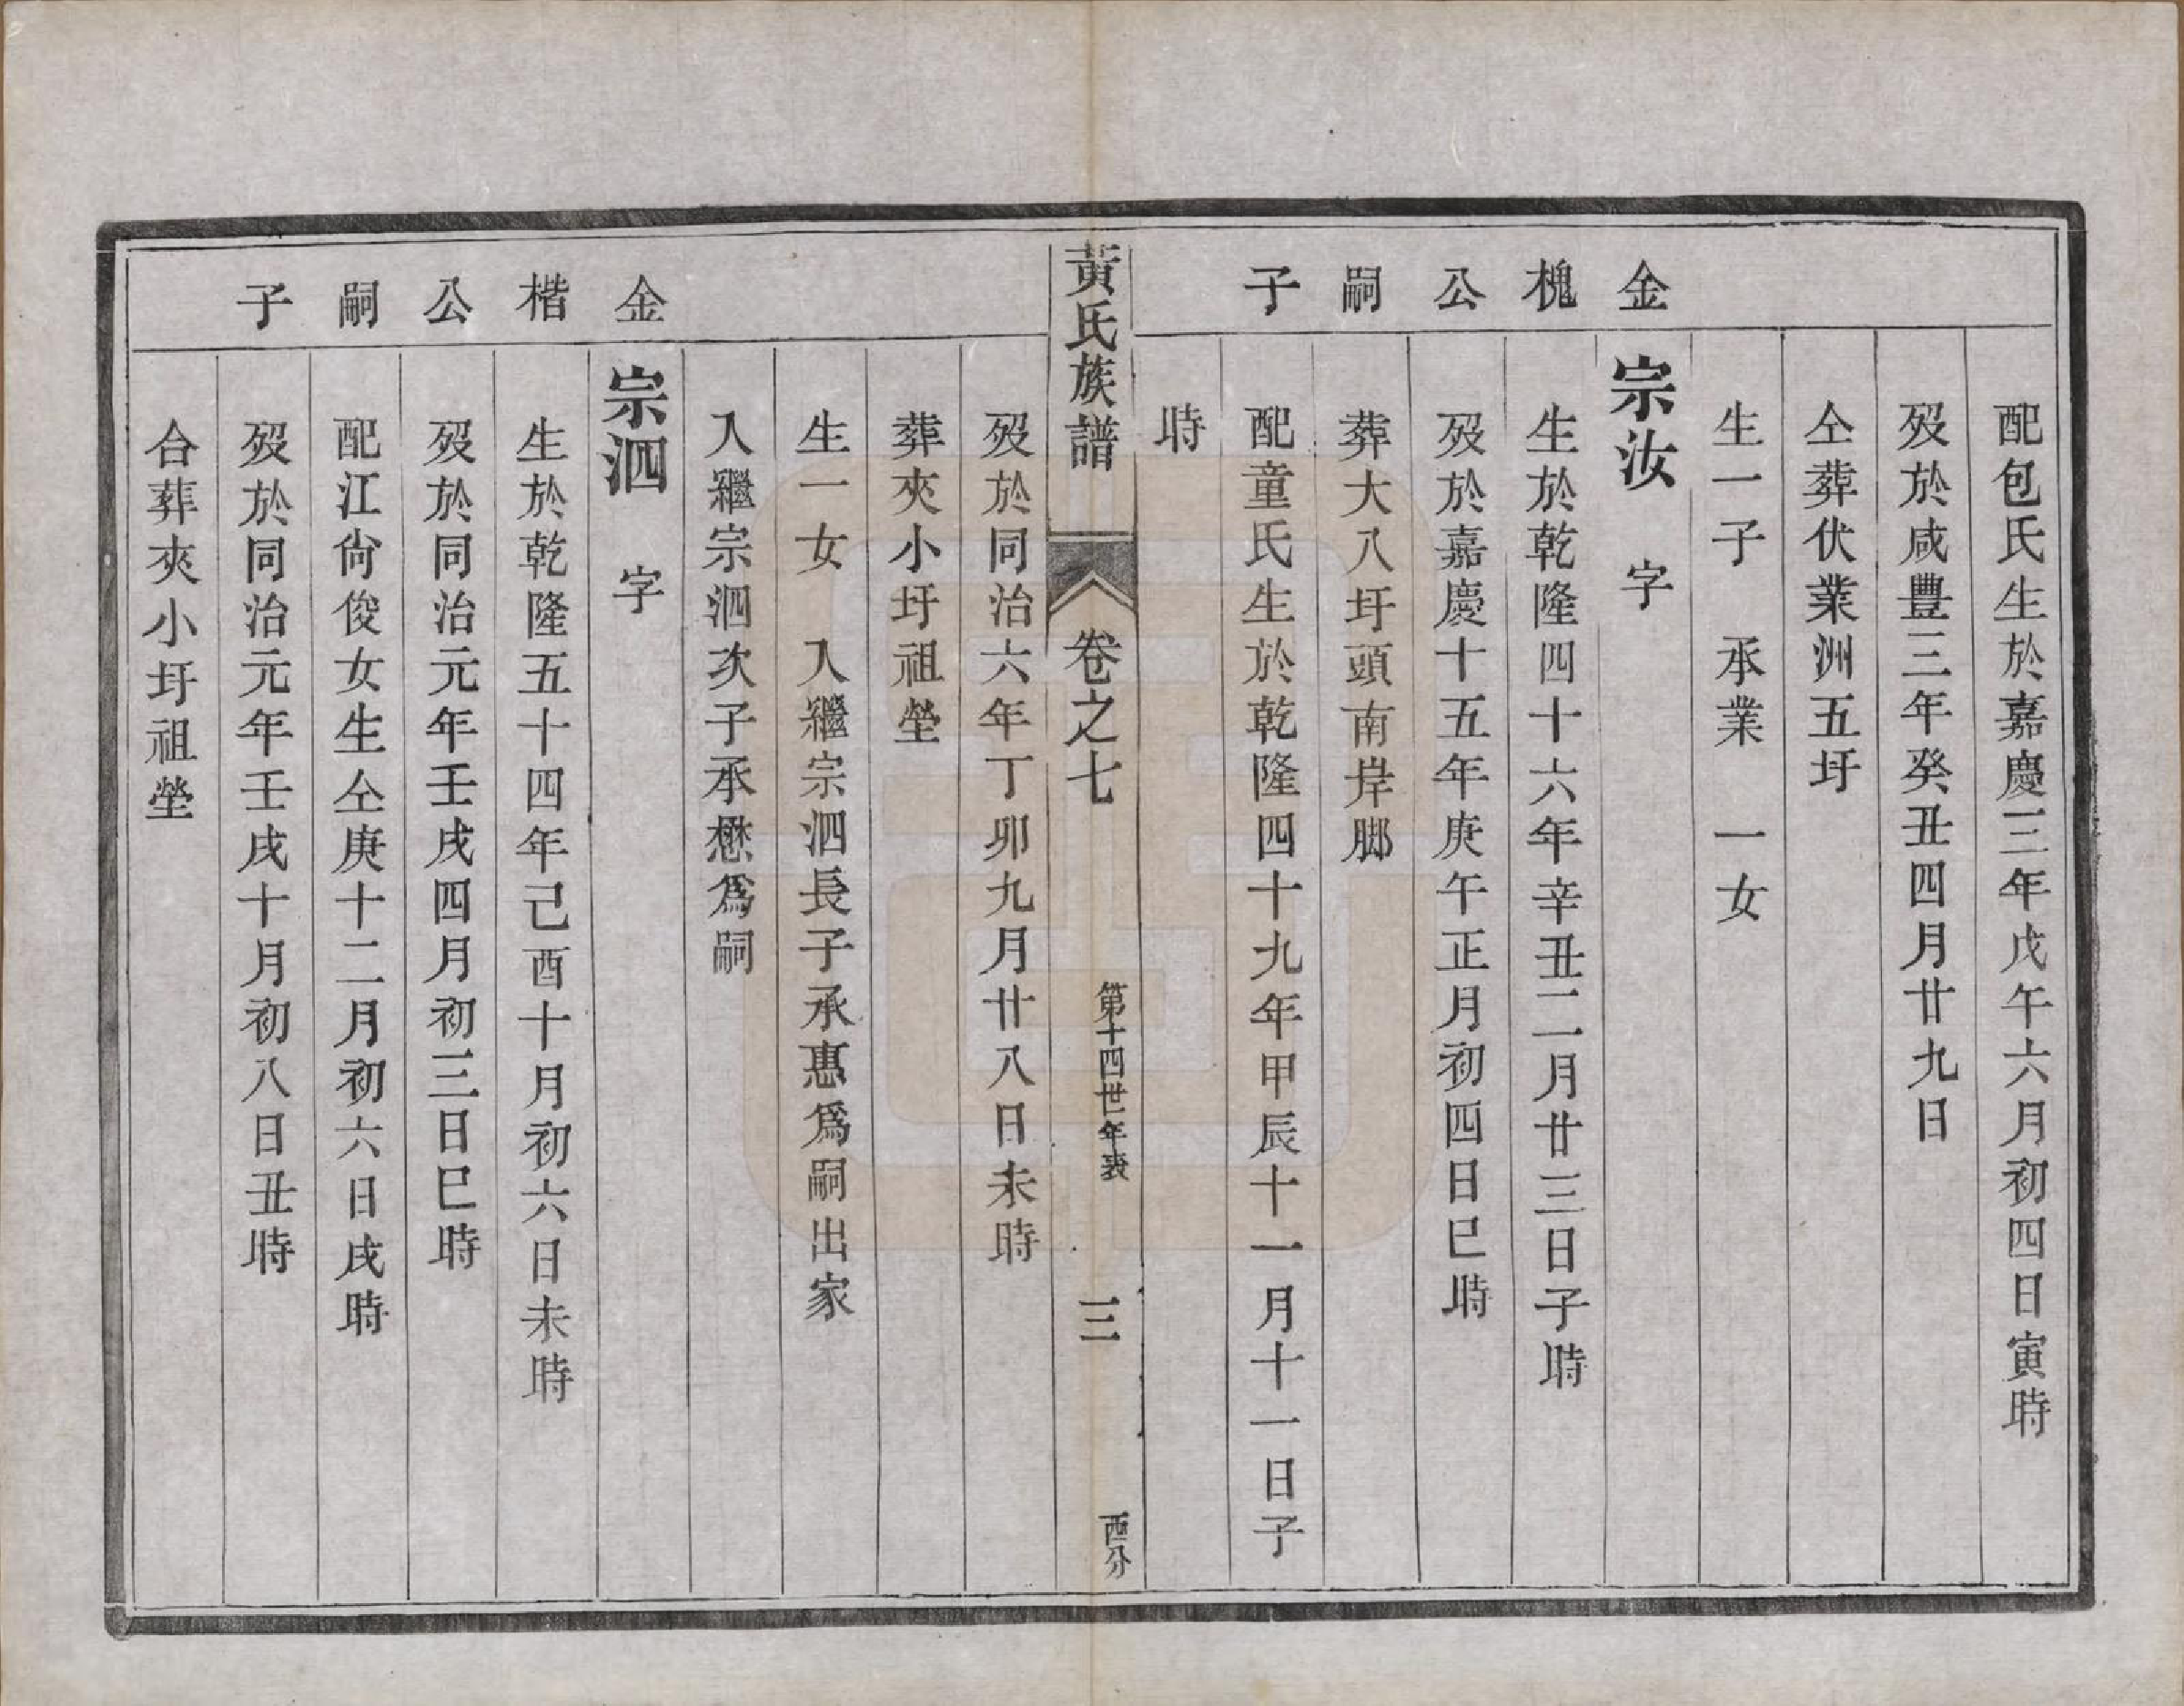 配包氏生於嘉慶三年戊午六月初四日寅時
歿於咸豐三年癸丑四月廿九日
仝葬伏業洲五圩
生一子　承業　一女
金槐公嗣子
宗汝　字
生於乾隆四十六年辛丑二月廿三日子時
歿於嘉慶十五年庚午正月初四日巳時
葬大八圩頭南岸脚
配童氏生於乾隆四十九年甲辰十一月十一日子
時
黃氏族譜　卷之七　第十四世年表　三　西分
歿於同治六年丁卯九月廿八日未時
葬夾小圩祖塋
生一女　入繼宗泗長子承惠爲嗣出家
入繼宗泗次子承懋爲嗣
金楷公嗣子
宗泗　字
生於乾隆五十四年己酉十月初六日未時
歿於同治元年壬戌四月初三日巳時
配江尙俊女生仝庚十二月初六日戌時
歿於同治元年壬戌十月初八日丑時
合葬夾小圩祖塋